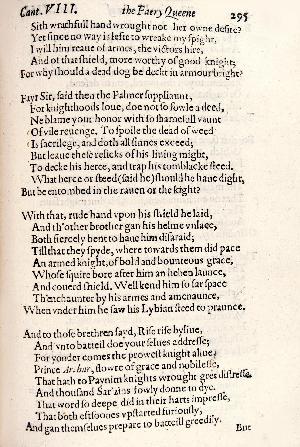 Cant. VIII. the Faery Queene 295
Sith wrathfull hand wrought not her owne desire?
Yet since no way is lefte to wreake my spight,
I will him reaue of armes, the victors hire,
And of that shield, more worthy of good knight;
For why should a dead dog be deckt in armour bright?
Fayr Sir, said then the Palmer suppliaunt,
For knighthoods loue, doe not so fowle a deed,
Ne blame your honor with so shamefull vaunt
Of vile reuenge. To spoile the dead of weed
Is sacrilege, and doth all sinnes exceed;
But leaue these relicks of his liuing might,
To decke his herce, and trap his tomb-blacke steed.
What herce or steed (said he) should he haue dight,
But be entombed in the rauen or the kight?
With that, rude hand vpon his shield he laid,
And th'other brother gan his helme vnlace,
Both fiercely bent to haue him disaraid;
Till that they spyde, where towards them did pace
An armed knight, of bold and bounteous grace,
Whose squire bore after him an heben launce,
And couerd shield. Well kend him so far space
Th'enchaunter by his armes and amenaunce,
When vnder him he saw his Lybian steed to praunce.
And to those brethren sayd, Rise rise byliue,
And vnto batteil doe your selues addresse;
For yonder comes the prowest knight aliue,
Prince Arthur, flowre of grace and nobilesse,
That hath to Paynim knights wrought gret distresse,
And thousand Sar'zins fowly donne to dye.
That word so deepe did in their harts impresse,
That both eftsoones vpstarted furiously,
And gan themselues prepare to batteill greedily.
But